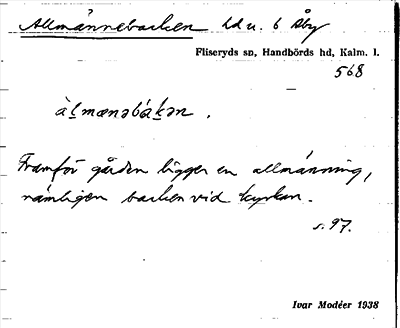 Allmännebacken hd u. 6 Åby
Fliseryds sn, Handbörds hd, Kalm. l.
568
àl̠mænəbákən .
Framför gården ligger en allmänning,
nämligen backen vid kyrkan.
s. 97.
Ivar Modéer 1938